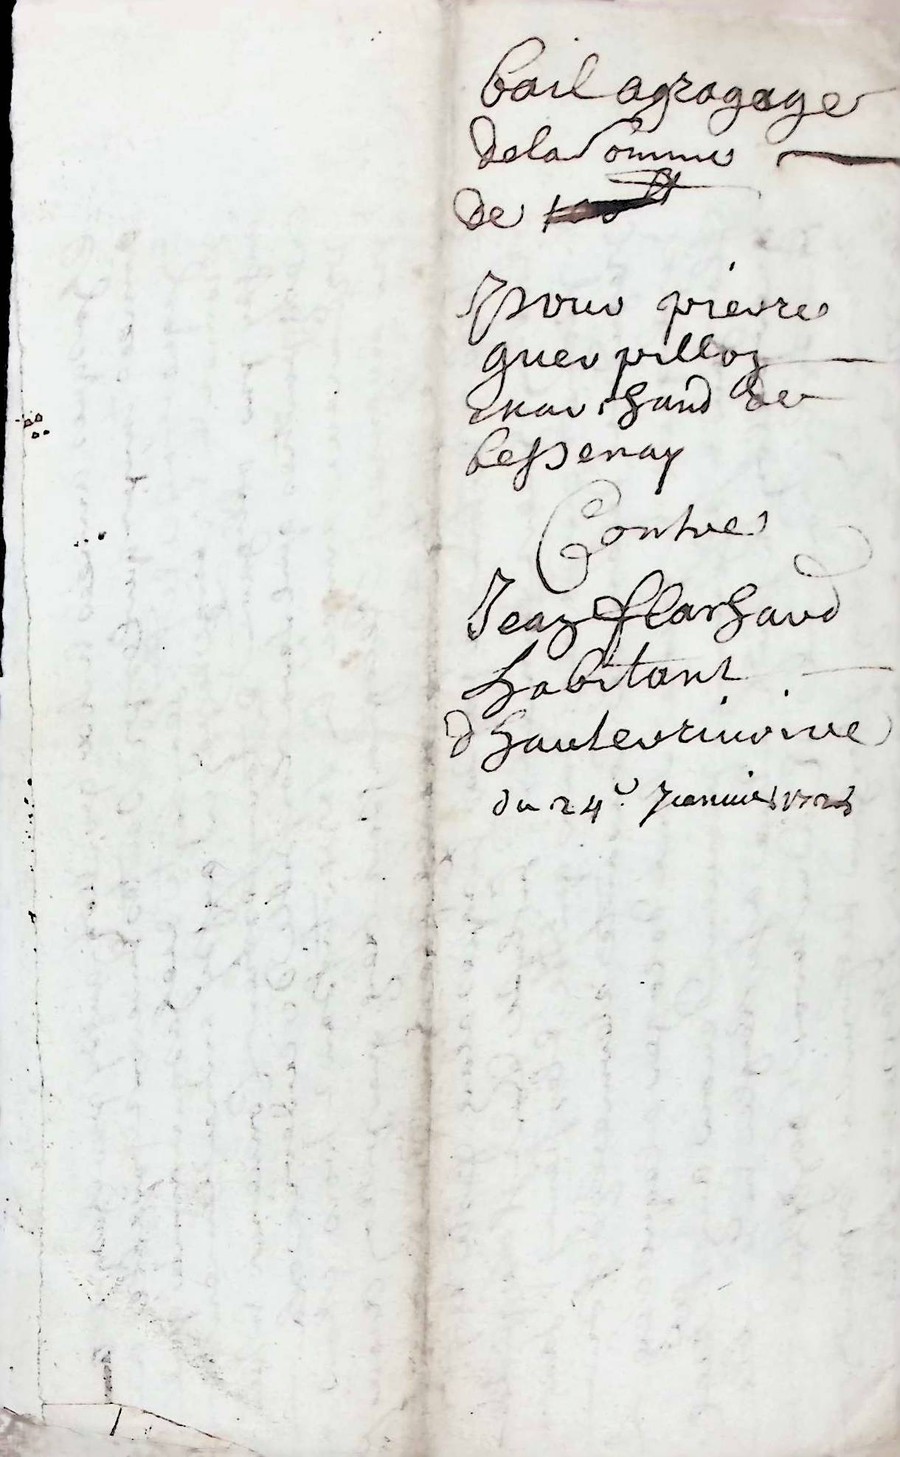 bail agragage
dela somme
de
pour pierre
guerpilloz
marchand de
bessenay
Contre
Jean flarhaud
habitant
d hauterivoire
du 24e Janvier